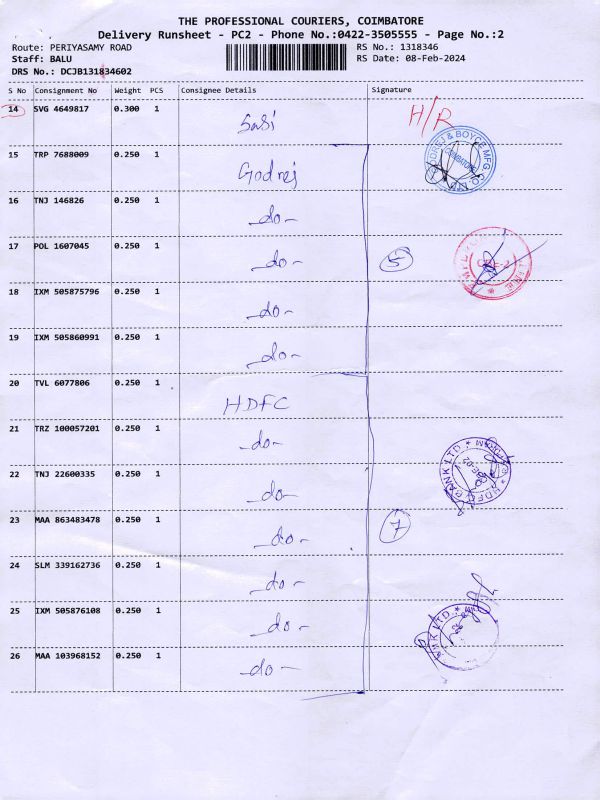 THE PROFESSIONAL COURIERS, COIMBATORE
Delivery Runsheet - PC2 - Phone No.:0422-3505555 - Page No.:2
Route: PERIYASAMY ROAD RS No.: 1318346
Staff: BALU RS Date: 08-Feb-2024
DRS No.: DCJB131834602
S No Consignment No Weight PCS Consignee Details Signature
14 SVG 4649817 0.300 1 Sasi H/R
15 TRP 7688009 0.250 1 Godrej
GODREJ & BOYCE MFG CO. LTD. COIMBATORE
16 TNJ 146826 0.250 1 -do-
17 POL 1607045 0.250 1 -do- 5
CBE-2
18 IXM 505875796 0.250 1 -do-
19 IXM 505860991 0.250 1 -do-
20 TVL 6077806 0.250 1 HDFC
21 TRZ 100057201 0.250 1 -do-
HDFC BANK LTD.
22 TNJ 22600335 0.250 1 -do-
23 MAA 863483478 0.250 1 -do- 7
24 SLM 339162736 0.250 1 -do-
25 IXM 505876108 0.250 1 -do-
LTD.
26 MAA 103968152 0.250 1 -do-